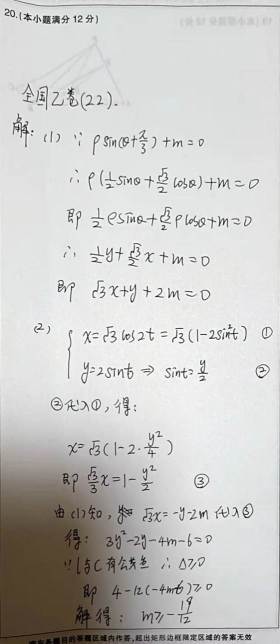 20.(本小题满分12分)
全国乙卷(22).
解: (1) ∵ ρsin(θ+π/3)+m=0
∴ ρ(1/2 sinθ+√3/2 cosθ)+m=0
即 1/2 ρsinθ+√3/2 ρcosθ+m=0
∴ 1/2 y+√3/2 x+m=0
即 √3x+y+2m=0
(2) { x=√3cos2t=√3(1-2sin²t) ①
y=2sint ⇒ sint=y/2 ②
②代入①, 得:
x=√3(1-2·y²/4)
即 √3/3 x=1-y²/2 ③
由(1)知, √3x=-y-2m 代入③
得: 3y²-2y-4m-6=0
∵l与C有公共点 ∴ Δ≥0
即 4-12(-4m-6)≥0
解得: m≥-19/12
请在各题目的答题区域内作答,超出矩形边框限定区域的答案无效